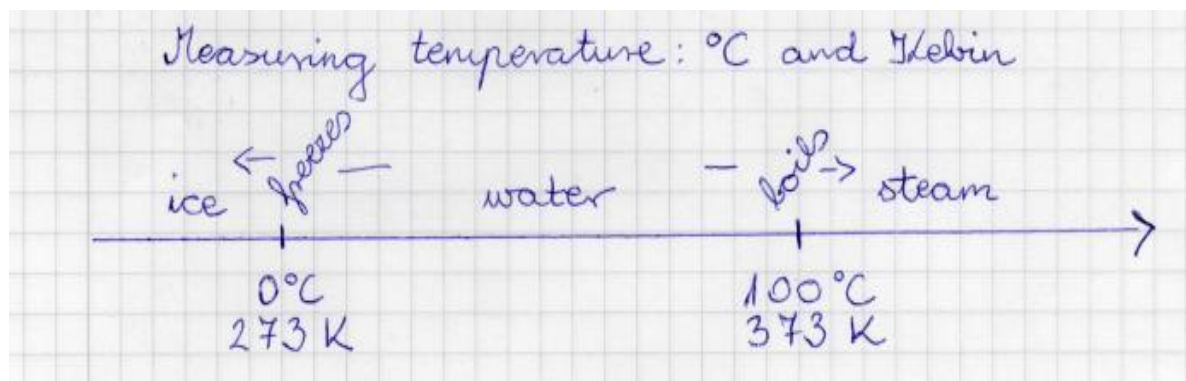 Measuring temperature: °C and Kelvin
ice ← freezes — water — boils → steam
0°C 100°C
273 K 373 K